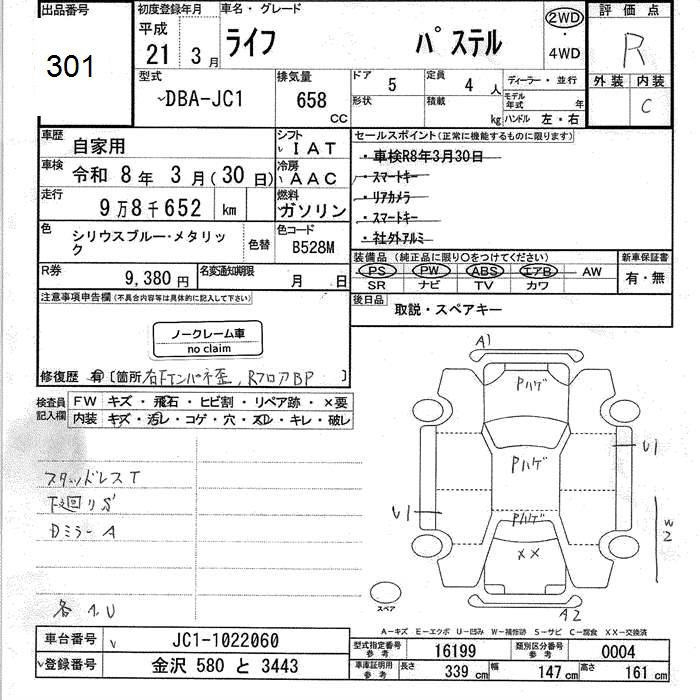 出品番号
301
初度登録年月
平成
21 3月
車名・グレード
ライフ パステル
2WD
・
4WD
評価点
R
外装 内装
C
型式
DBA-JC1
排気量
658
CC
ドア 5
定員 4 人
形状
積載 kg
ディーラー・並行
モデル年式 年
ハンドル 左・右
車歴
自家用
シフト
IAT
車検
令和 8年 3月(30日)
冷房
AAC
走行
9万8千652 km
燃料
ガソリン
色
シリウスブルー・メタリック
色替
色コード
B528M
R券
9,380円
名変通知期限
月 日
セールスポイント(正常に機能するものに限ります)
・車検R8年3月30日
・スマートキー
・リアカメラ
・スマートキー
・社外アルミ
装備品(純正品に限り○をつけてください)
PS PW ABS エアB AW
SR ナビ TV カワ
新車保証書
有・無
後日品
取説・スペアキー
注意事項申告欄(不具合内容等は具体的に記入して下さい)
ノークレーム車
no claim
修復歴 有 〔箇所 右Fインパネ歪, RフロアBP 〕
検査員記入欄
FW キズ・飛石・ヒビ割・リペア跡・×要
内装 キズ・汚レ・コゲ・穴・スレ・キレ・破レ
スタッドレスT
下廻りS
Dミラー A
各 1,U
A1
Pハゲ
Pハゲ
Pハゲ
××
U1
U1
W2
A2
スペア
A−キズ E−エクボ U−凹み W−補修跡 S−サビ C−腐食 XX−交換済
車台番号
JC1-1022060
登録番号
金沢 580 と 3443
型式指定番号
参考
16199
類別区分番号
参考
0004
車庫証明用
参考
長さ 339 cm
幅 147 cm
高さ 161 cm